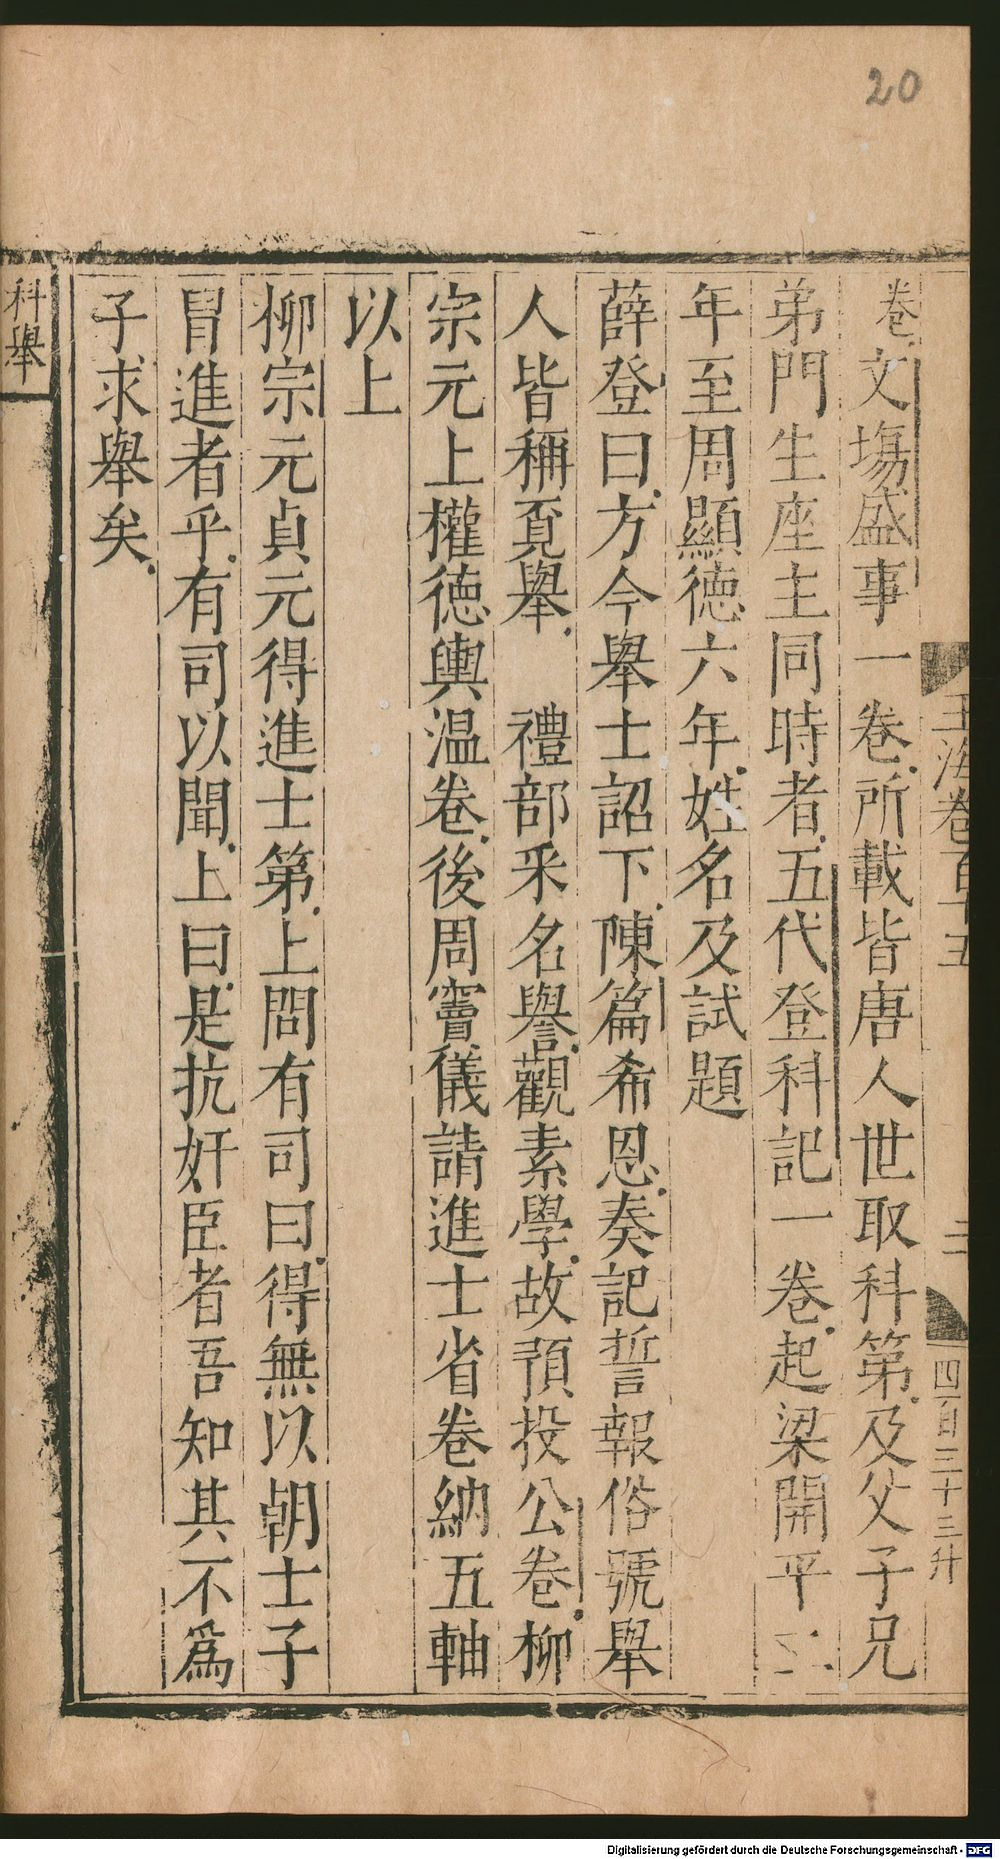 20
玉海卷百十五
二
四百三十三升
卷文塲盛事一卷所載皆唐人世取科第及父子兄
弟門生座主同時者五代登科記一卷起梁開平二
年至周顯德六年姓名及試題
薛登曰方今舉士詔下陳篇希恩奏記誓報俗號舉
人皆稱覔舉　禮部采名譽觀素學故預投公卷柳
宗元上權德輿温卷後周竇儀請進士省卷納五軸
以上
柳宗元貞元得進士第上問有司曰得無以朝士子
冒進者乎有司以聞上曰是抗奸臣者吾知其不爲
子求舉矣
科舉
Digitalisierung gefördert durch die Deutsche Forschungsgemeinschaft - DFG